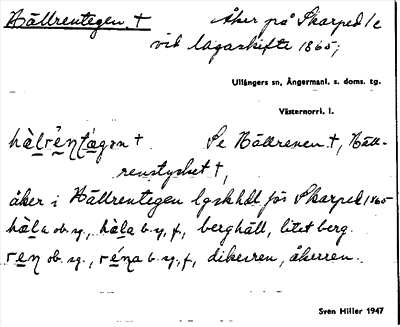 Hällrentegen. †
Åker på Skarped 1/2
vid lagaskifte 1865;
Ullångers sn, Ångermanl. s. doms. tg.
Västernorrl. l.
Se Hällrenen †, Häll-
renstycket †,
åker i Hällrentegen lgskhdl för Skarped 1865
häla ob. sg., häla b. sg. f, berghäll, litet berg.
ren ob. sg., réna b. sg. f, dikesren, åkerren.
Sven Hiller 1947